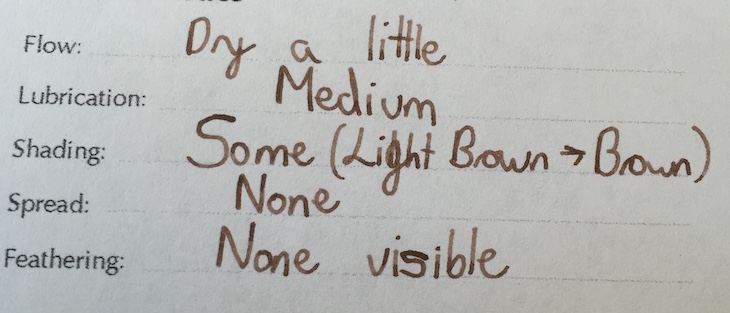 Flow: Dry a little
Lubrication: Medium
Shading: Some (Light Brown → Brown)
Spread: None
Feathering: None visible